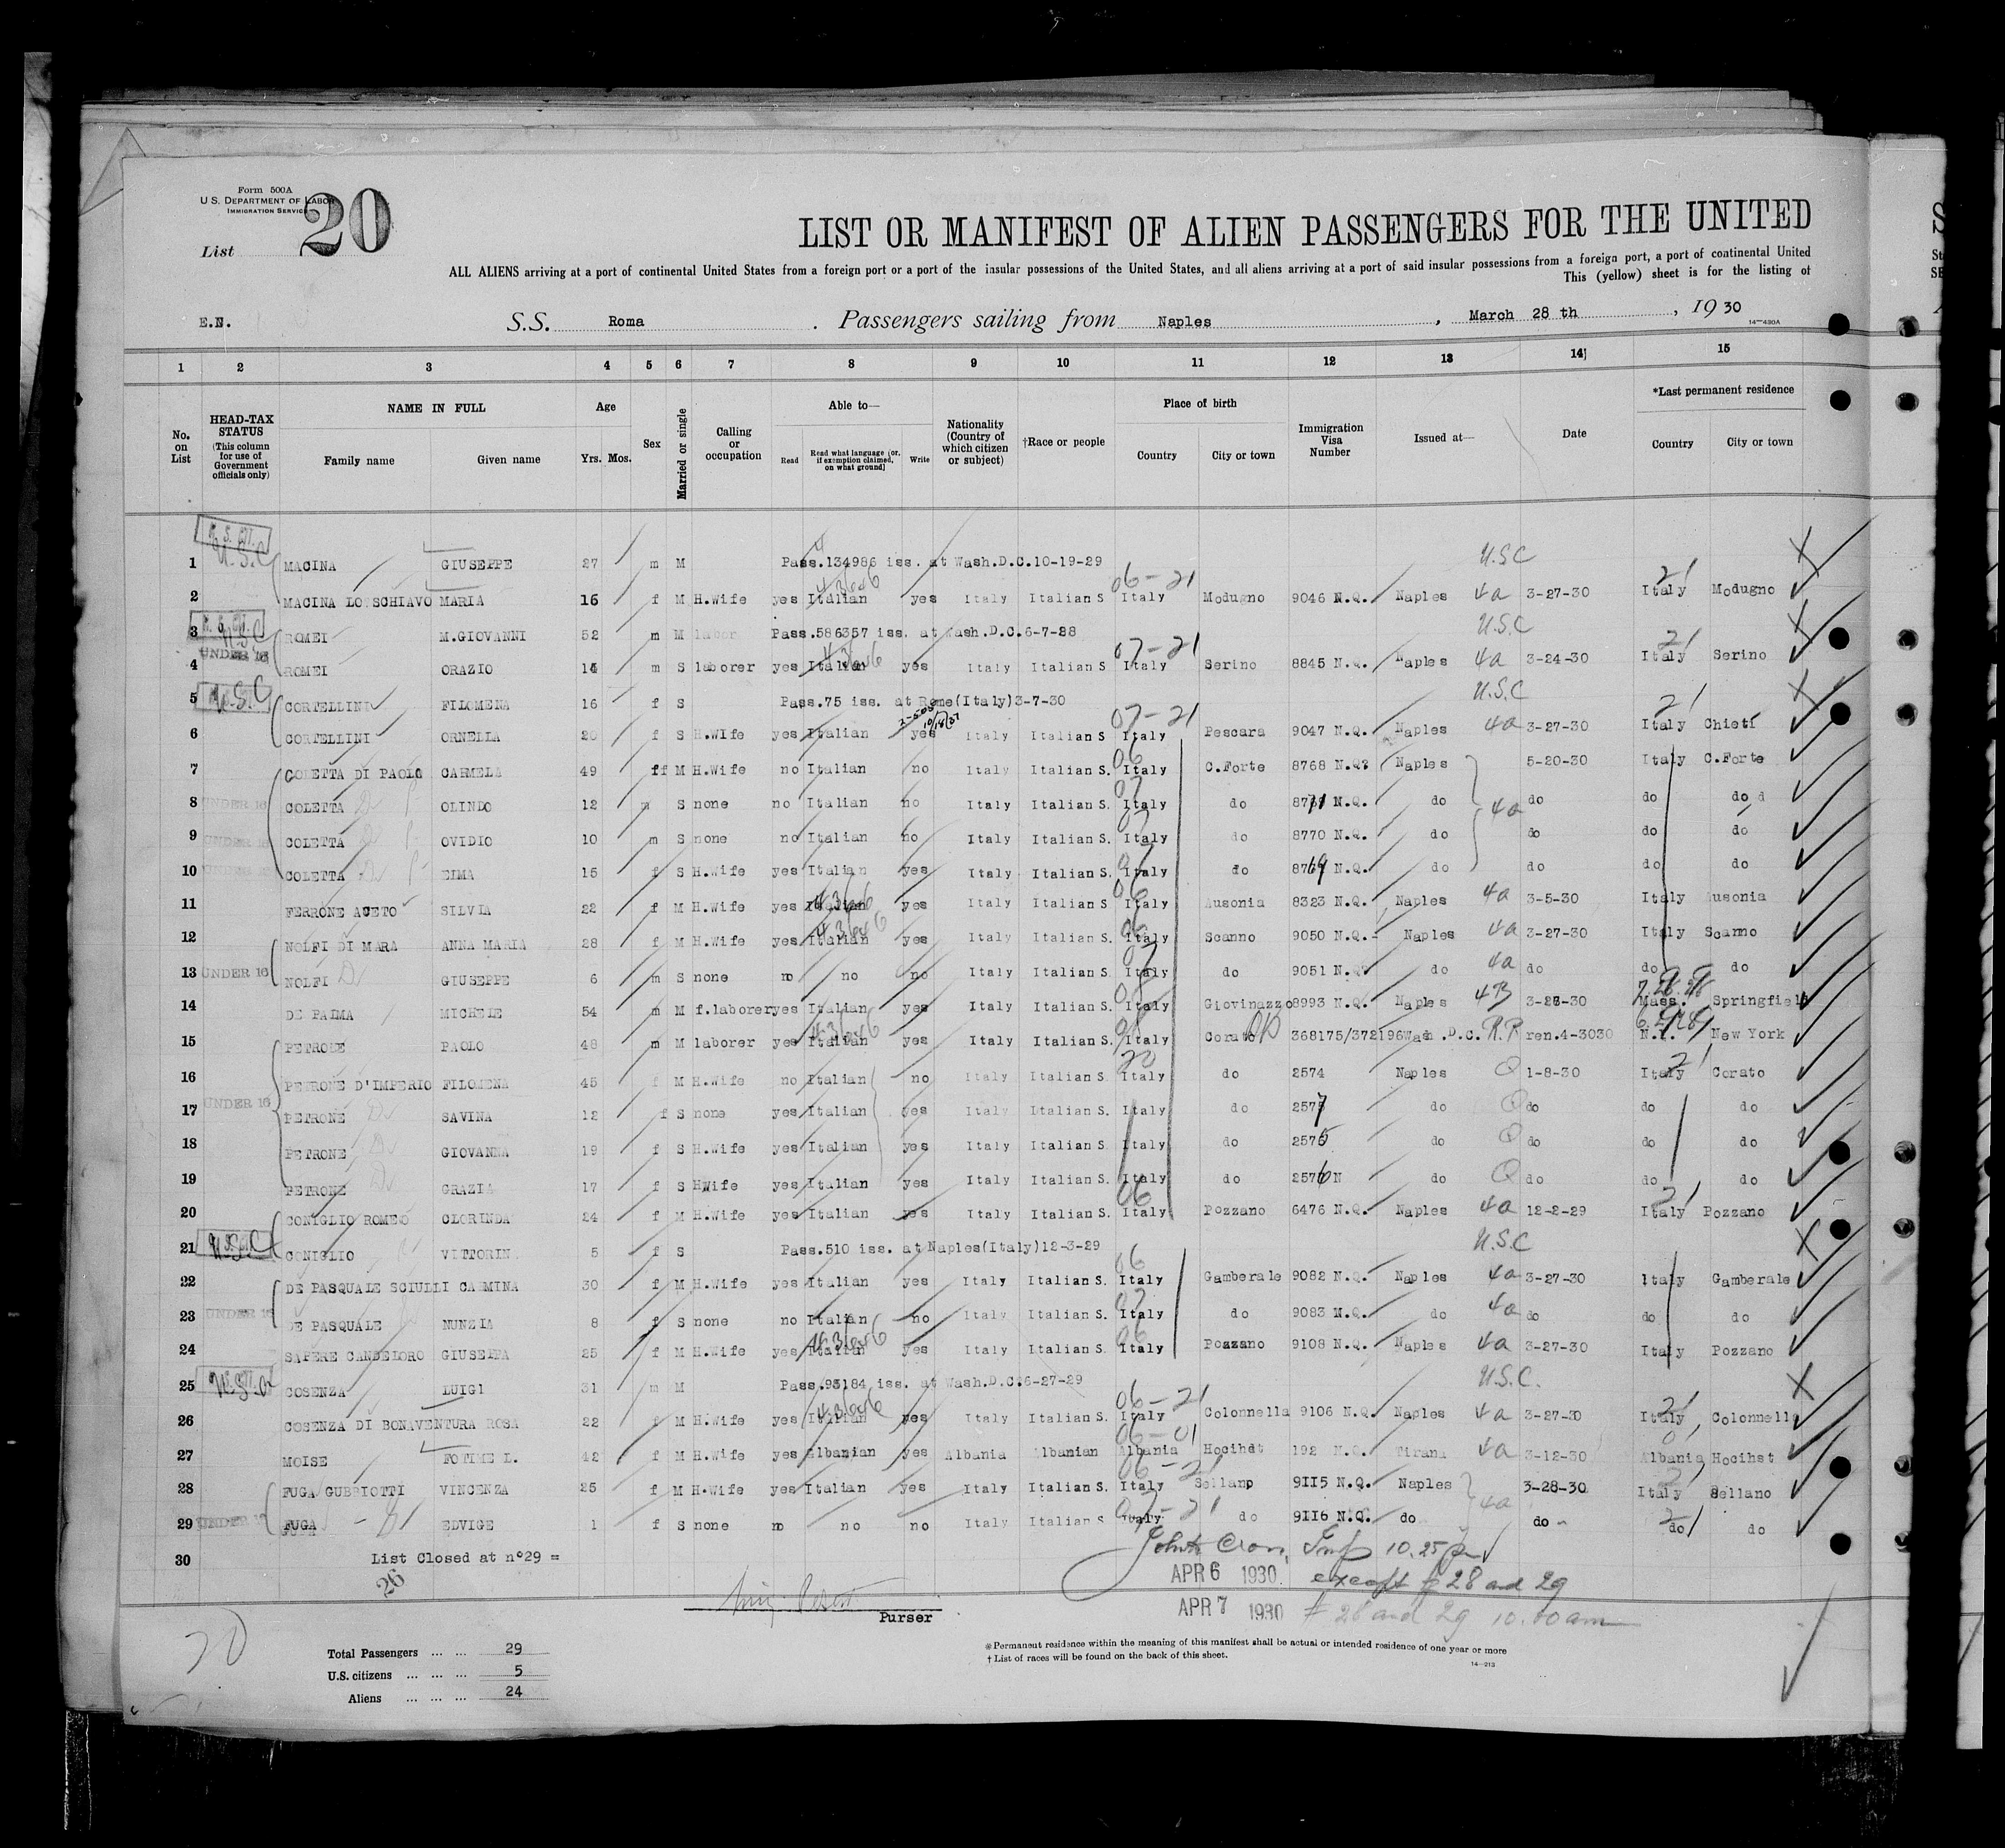 Form 500A
U. S. DEPARTMENT OF LABOR
IMMIGRATION SERVICE
List 20
LIST OR MANIFEST OF ALIEN PASSENGERS FOR THE UNITED
ALL ALIENS arriving at a port of continental United States from a foreign port or a port of the insular possessions of the United States, and all aliens arriving at a port of said insular possessions from a foreign port, a port of continental United
This (yellow) sheet is for the listing of
E.N. S.S. Roma . Passengers sailing from Naples , March 28 th , 19 30
14—430A
1 2 3 4 5 6 7 8 9 10 11 12 13 14 15
No. on List
HEAD-TAX STATUS (This column for use of Government officials only)
NAME IN FULL Family name Given name
Age Yrs. Mos.
Sex
Married or single
Calling or occupation
Able to— Read Read what language (or, if exemption claimed, on what ground) Write
Nationality (Country of which citizen or subject)
†Race or people
Place of birth Country City or town
Immigration Visa Number
Issued at—
Date
*Last permanent residence Country City or town
1 U.S.C MACINA GIUSEPPE 27 m M Pass.134986 iss. at Wash.D.C.10-19-29 U.S.C
2 MACINA LO SCHIAVO MARIA 16 f M H.Wife yes Italian yes Italy Italian S Italy 06-21 Modugno 9046 N.Q. Naples 4a 3-27-30 Italy Modugno
3 U.S.C ROMEI M.GIOVANNI 52 m M labor Pass.586357 iss. at Wash.D.C.6-7-28 U.S.C
4 UNDER 16 ROMEI ORAZIO 14 m S laborer yes Italian yes Italy Italian S Italy 07-21 Serino 8845 N.Q. Naples 4a 3-24-30 Italy Serino
5 U.S.C CORTELLINI FILOMENA 16 f S Pass.75 iss. at Rome(Italy)3-7-30 U.S.C
6 CORTELLINI ORNELLA 20 f S H.WIfe yes Italian yes Italy Italian S Italy 07-21 Pescara 9047 N.Q. Naples 4a 3-27-30 Italy Chieti
7 COLETTA DI PAOLO CARMELA 49 ff M H.Wife no Italian no Italy Italian S. Italy C.Forte 8768 N.Q. Naples 5-20-30 Italy C.Forte
8 UNDER 16 COLETTA OLINDO 12 m S none no Italian no Italy Italian S. Italy do 8771 N.Q. do 4a do do do
9 UNDER 16 COLETTA OVIDIO 10 m S none no Italian no Italy Italian S. Italy do 8770 N.Q. do do do do
10 UNDER 16 COLETTA EIMA 15 f S H.Wife yes Italian yes Italy Italian S. Italy do 8769 N.Q. do do do do
11 FERRONE ACETO SILVIA 22 f M H.Wife yes Italian yes Italy Italian S Italy Ausonia 8323 N.Q. Naples 4a 3-5-30 Italy Ausonia
12 NOLFI DI MARA ANNA MARIA 28 f M H.Wife yes Italian yes Italy Italian S. Italy Scanno 9050 N.Q. Naples 4a 3-27-30 Italy Scanno
13 UNDER 16 NOLFI GIUSEPPE 6 m S none no no no Italy Italian S Italy do 9051 N.Q. do 4a do do do
14 DE PALMA MICHELE 54 m M f.laborer yes Italian yes Italy Italian S. Italy Giovinazzo 8993 N.Q. Naples 4B Mass. Springfield
15 PETRONE PAOLO 48 m M laborer yes Italian yes Italy Italian S. Italy Corato 368175/372196 Wash.D.C. R.P. ren.4-3030 N.Y. New York
16 PETRONE D'IMPERIO FILOMENA 45 f M H.Wife no Italian no Italy Italian S. Italy do 2574 Naples Q 1-8-30 Italy Corato
17 UNDER 16 PETRONE SAVINA 12 f S none yes Italian yes Italy Italian S. Italy do 2577 do Q do do do
18 PETRONE GIOVANNA 19 f S H.Wife yes Italian yes Italy Italian S. Italy do 2575 do Q do do do
19 PETRONE GRAZIA 17 f S HWife yes Italian yes Italy Italian S. Italy do 2576 N do Q do do do
20 CONIGLIO ROMEO CLORINDA 24 f M H.Wife yes Italian yes Italy Italian S. Italy 06 Pozzano 6476 N.Q. Naples 4a 12-2-29 Italy Pozzano
21 U.S.C CONIGLIO VITTORIN 5 f S Pass.510 iss. at Naples(Italy)12-3-29 U.S.C
22 DE PASQUALE SCIULLI CARMINA 30 f M H.Wife yes Italian yes Italy Italian S. Italy 06 Gamberale 9082 N.Q. Naples 4a 3-27-30 Italy Gamberale
23 UNDER 16 DE PASQUALE NUNZIA 8 f S none no Italian no Italy Italian S. Italy do 9083 N.Q. do 4a do do do
24 SAPERE CANDELORO GIUSEPPA 25 f M H.Wife yes Italian yes Italy Italian S. Italy Pozzano 9108 N.Q. Naples 4a 3-27-30 Italy Pozzano
25 COSENZA LUIGI 31 m M Pass.93184 iss. at Wash.D.C.6-27-29 U.S.C.
26 COSENZA DI BONAVENTURA ROSA 22 f M H.Wife yes Italian yes Italy Italian S. Italy 06-21 Colonnella 9106 N.Q. Naples 4a 3-27-30 Italy Colonnella
27 MOISE FOTIME L. 42 f M H.Wife yes Albanian yes Albania Albanian Albania 06-01 Hocihst 192 N.Q. Tirana 4a 3-12-30 Albania Hocihst
28 FUGA GUBBIOTTI VINCENZA 25 f M H.Wife yes Italian yes Italy Italian S. Italy Sellano 9115 N.Q. Naples 3-28-30 Italy Sellano
29 UNDER 16 FUGA EDVIGE 1 f S none no no no Italy Italian S Italy do 9116 N.Q. do 4a do do do
30 List Closed at n°29 =
26
10.25 pm
APR 6 1930. except # 28 and 29
APR 7 1930 # 28 and 29 10.00 am
Purser
20
Total Passengers ... ... 29
U.S. citizens ... ... ... 5
Aliens ... ... ... 24
*Permanent residence within the meaning of this manifest shall be actual or intended residence of one year or more
†List of races will be found on the back of this sheet.
14—213